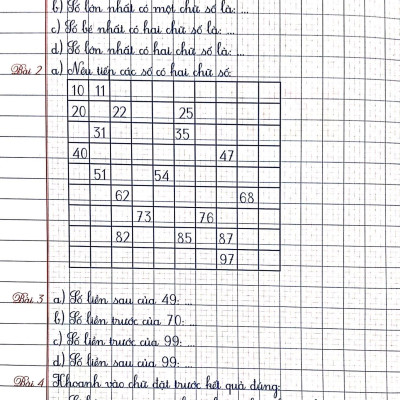 b) Số lớn nhất có một chữ số là: ...
c) Số bé nhất có hai chữ số là: ...
d) Số lớn nhất có hai chữ số là: ...
Bài 2 a) Nêu tiếp các số có hai chữ số:
10 11
20 22 25
31 35
40 47
51 54
62 68
73 76
82 85 87
97
Bài 3 a) Số liền sau của 49: ...
b) Số liền trước của 70: ...
c) Số liền trước của 99: ...
d) Số liền sau của 99: ...
Bài 4 Khoanh vào chữ đặt trước kết quả đúng: